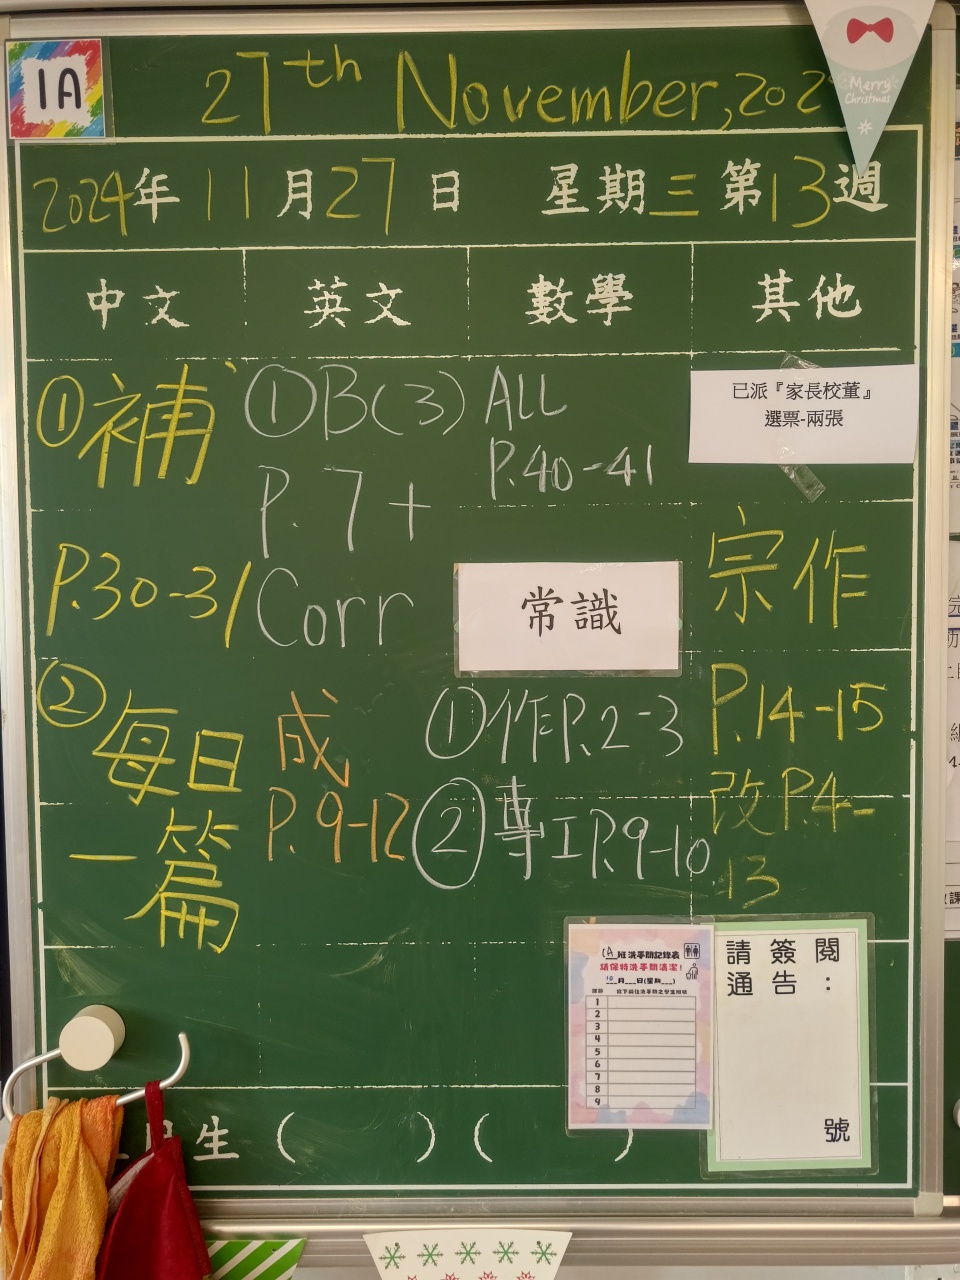 1A
27th November, 202
Merry
Christmas
2024年 11 月 27 日 星期三 第13週
中文 英文 數學 其他
①補
P.30-31
②每日
一篇
①B(3)
P.7+
Corr
成
P.9-12
ALL
P.40-41
常識
①作P.2-3
②專工P.9-10
已派『家長校董』
選票-兩張
宗作
P.14-15
改P.4-
13
1A 班洗手間記錄表
請保持洗手間清潔!
10月___日(星期___)
1
2
3
4
5
6
7
8
9
請簽閱
通告:
號
生( )( )